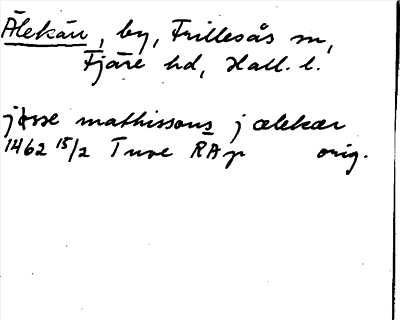 Älekärr, by, Frillesås sn,
Fjäre hd, Hall. l.
jesse mathissons j ælekær
1462 15/2 Tuve RAp orig.